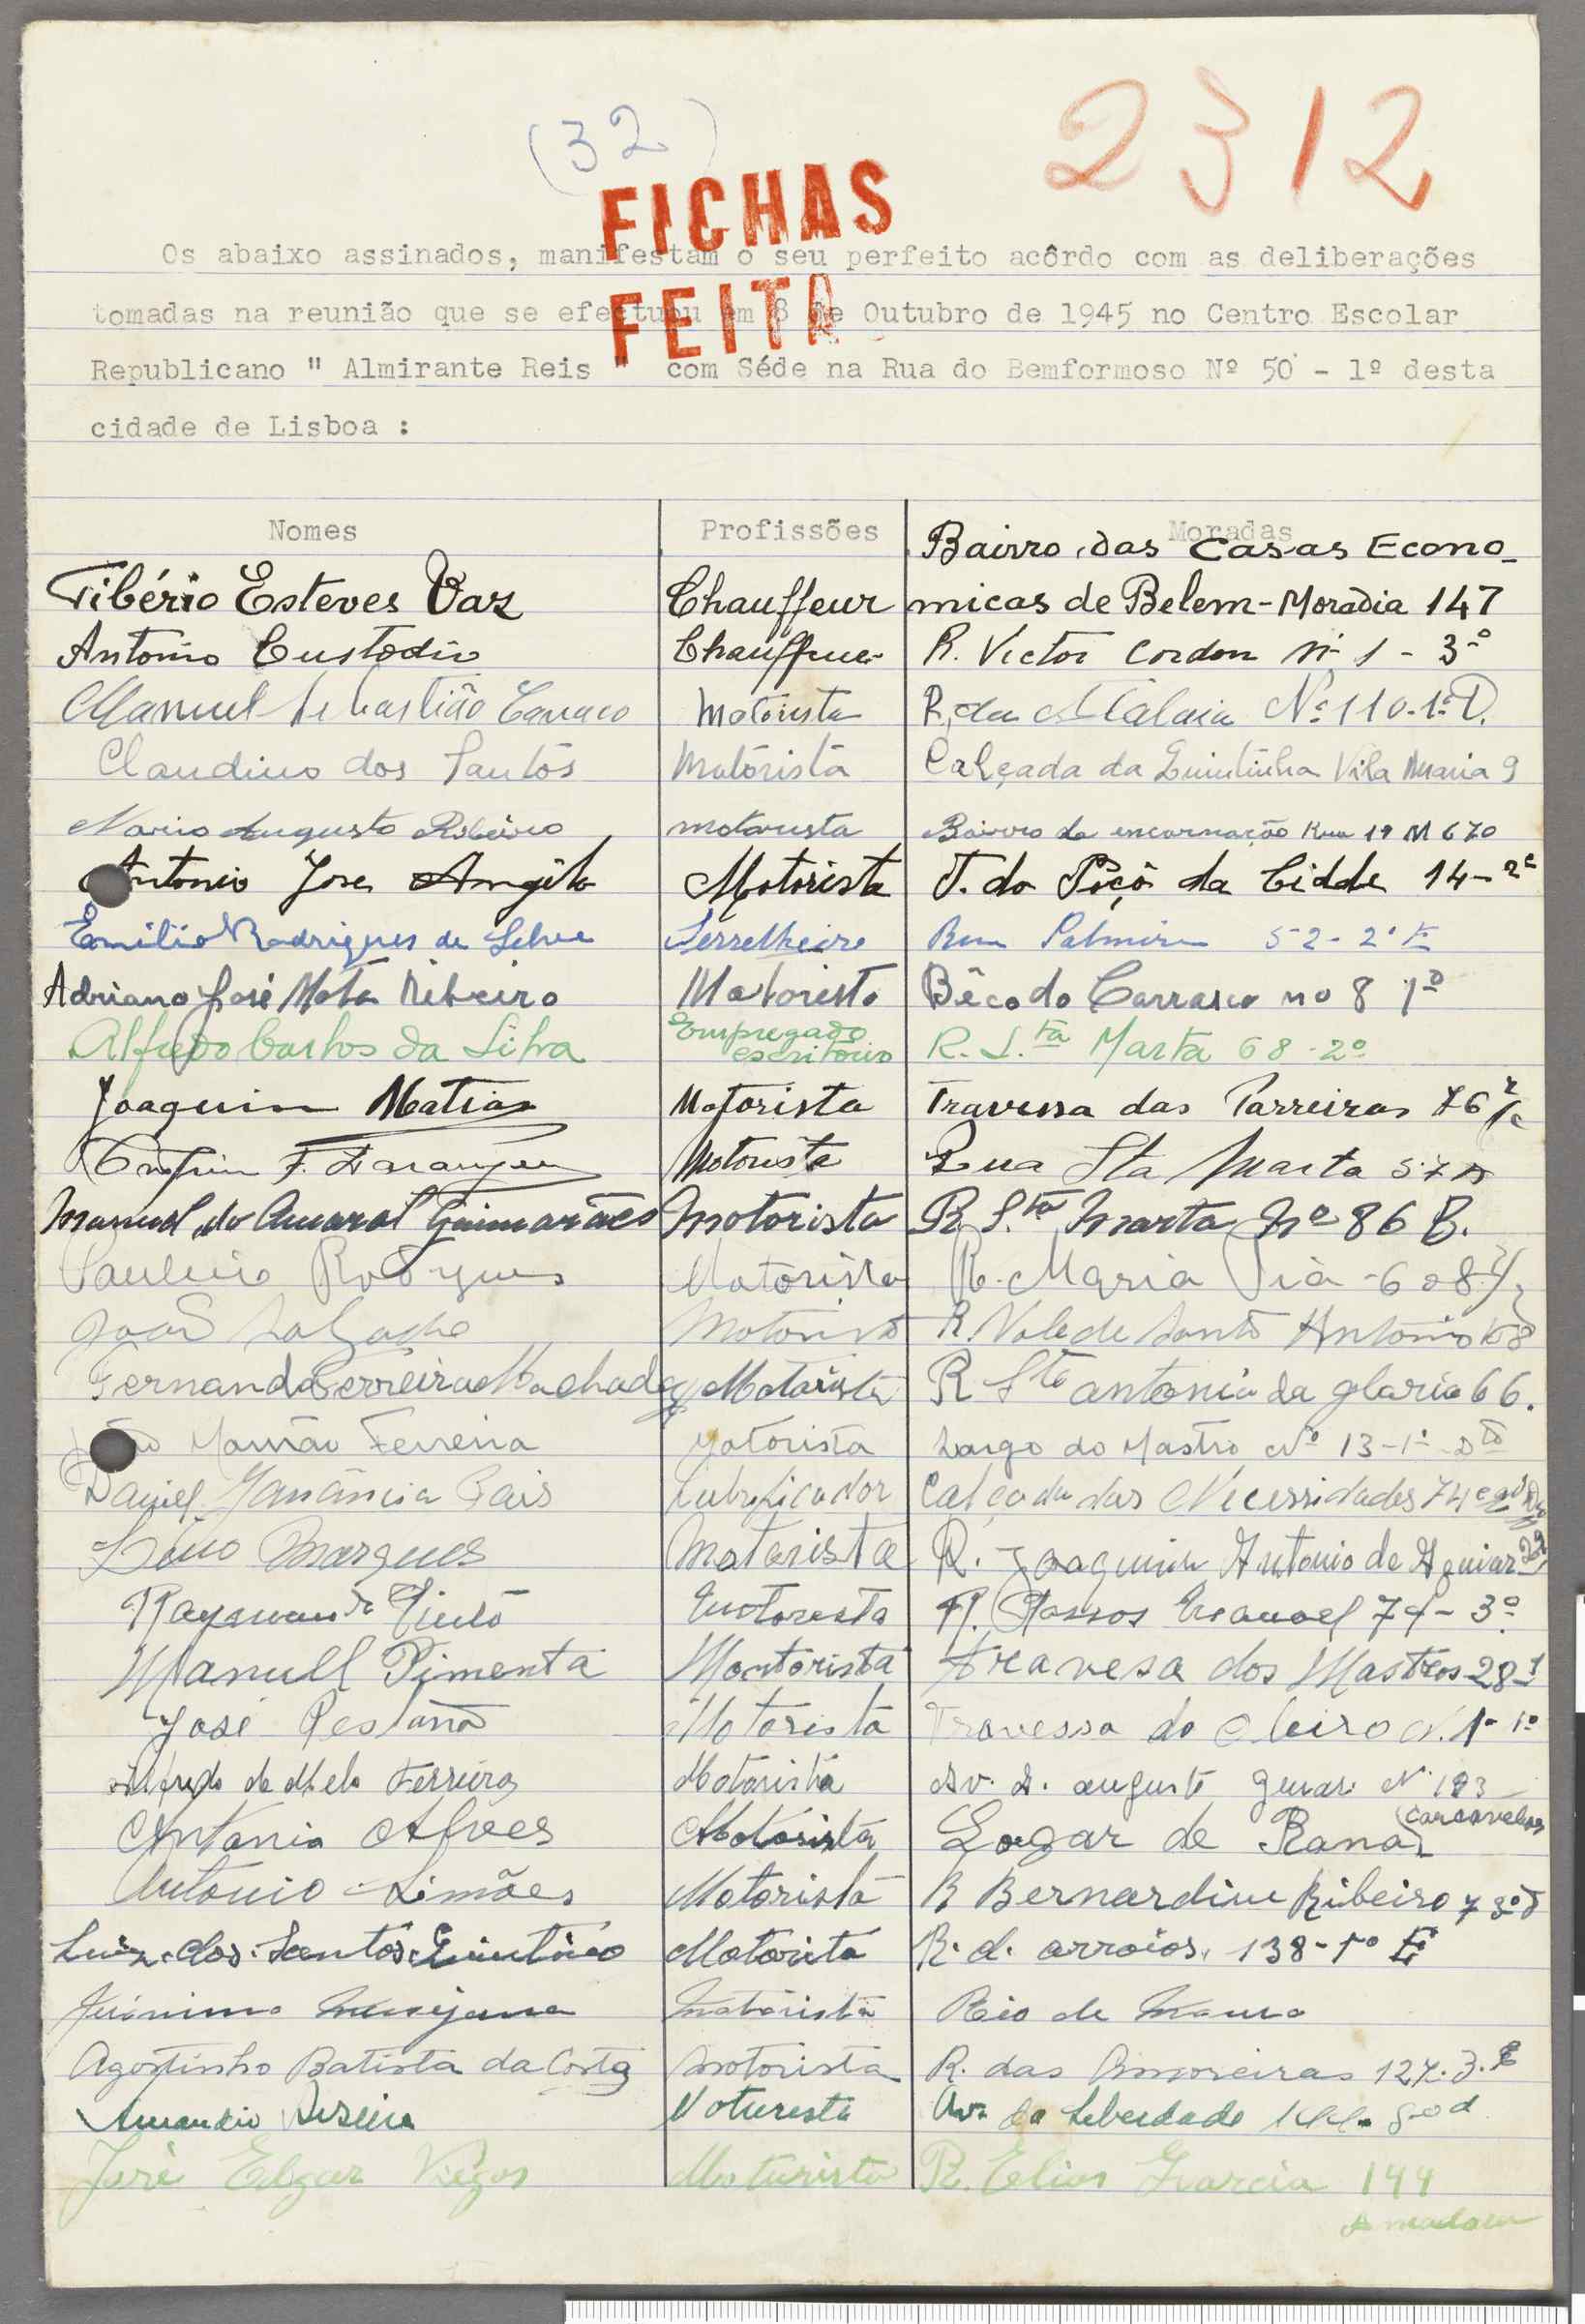 (32)
2312
FICHAS
FEITA
Os abaixo assinados, manifestam o seu perfeito acôrdo com as deliberações
tomadas na reunião que se efectuou em 8 de Outubro de 1945 no Centro Escolar
Republicano " Almirante Reis " com Séde na Rua do Bemformoso Nº 50 - 1º desta
cidade de Lisboa :
Nomes Profissões Moradas
Bairro das Casas Econo-
Tibério Esteves Vaz Chauffeur micas de Belem - Moradia 147
Antonio Custodio Chauffeur R. Victor Cordon Nº 1 - 3º
Manuel Sebastião Motorista R. da Atalaia Nº 110-1º D.
Claudino dos Santos Motorista Calçada da Quintinha Vila Maria 9
Mario Augusto Ribeiro motorista Bairro da encarnação Rua 19 M 670
Antonio Jose Motorista T. do Poço da Cidde 14-2º
Emilio Rodrigues da Silva Serrelheiro Rua Palmira 52-2º
Adriano José Mota Ribeiro Motorista Bêco do Carrasco no 8 1º
Alfredo Carlos da Silva Empregado escritorio R. S.ta Marta 68-2º
Joaquim Matias Motorista Travessa das Parreiras 76
F. Motorista Rua Sta Marta 57
Manuel do Amaral Guimarães Motorista R. S.ta Marta Nº 86
Paulino Rodrigues Motorista R. Maria Pia
João Motorista R. Vale de Santo Antonio
Fernando Ferreira Machado Motorista R Sto antonio da gloria 66.
João Ferreira Motorista Largo do Mastro Nº 13-1º Dto
Daniel Pais Lubrificador Calçada das Necessidades 74
Lino Marques Motorista R. Joaquim Antonio de Aguiar
Raymundo Pinto Motorista R. Passos Manoel 7 - 3º
Manuell Pimenta Moutorista travesa dos Mastros 28-1
José Pestana Motorista Travessa do Oleiro N. 1-1º
Alfredo de Melo Ferreira Motorista Av. D. augusto N.
Antonio Alves Motorista Logar de Rana (Carcavelos)
António Simões Motorista R Bernardim Ribeiro 7 3º
Luiz dos Santos Motorita R. d. arroios. 138-1º E
Motorista Rio de Mouro
Agostinho Batista da Costa Motorista R. das Amoreiras 127. 3.
Amandio Motorista Av. da Liberdade
José Edgar Viegas Motorista R. Elias Garcia 144
Amadora